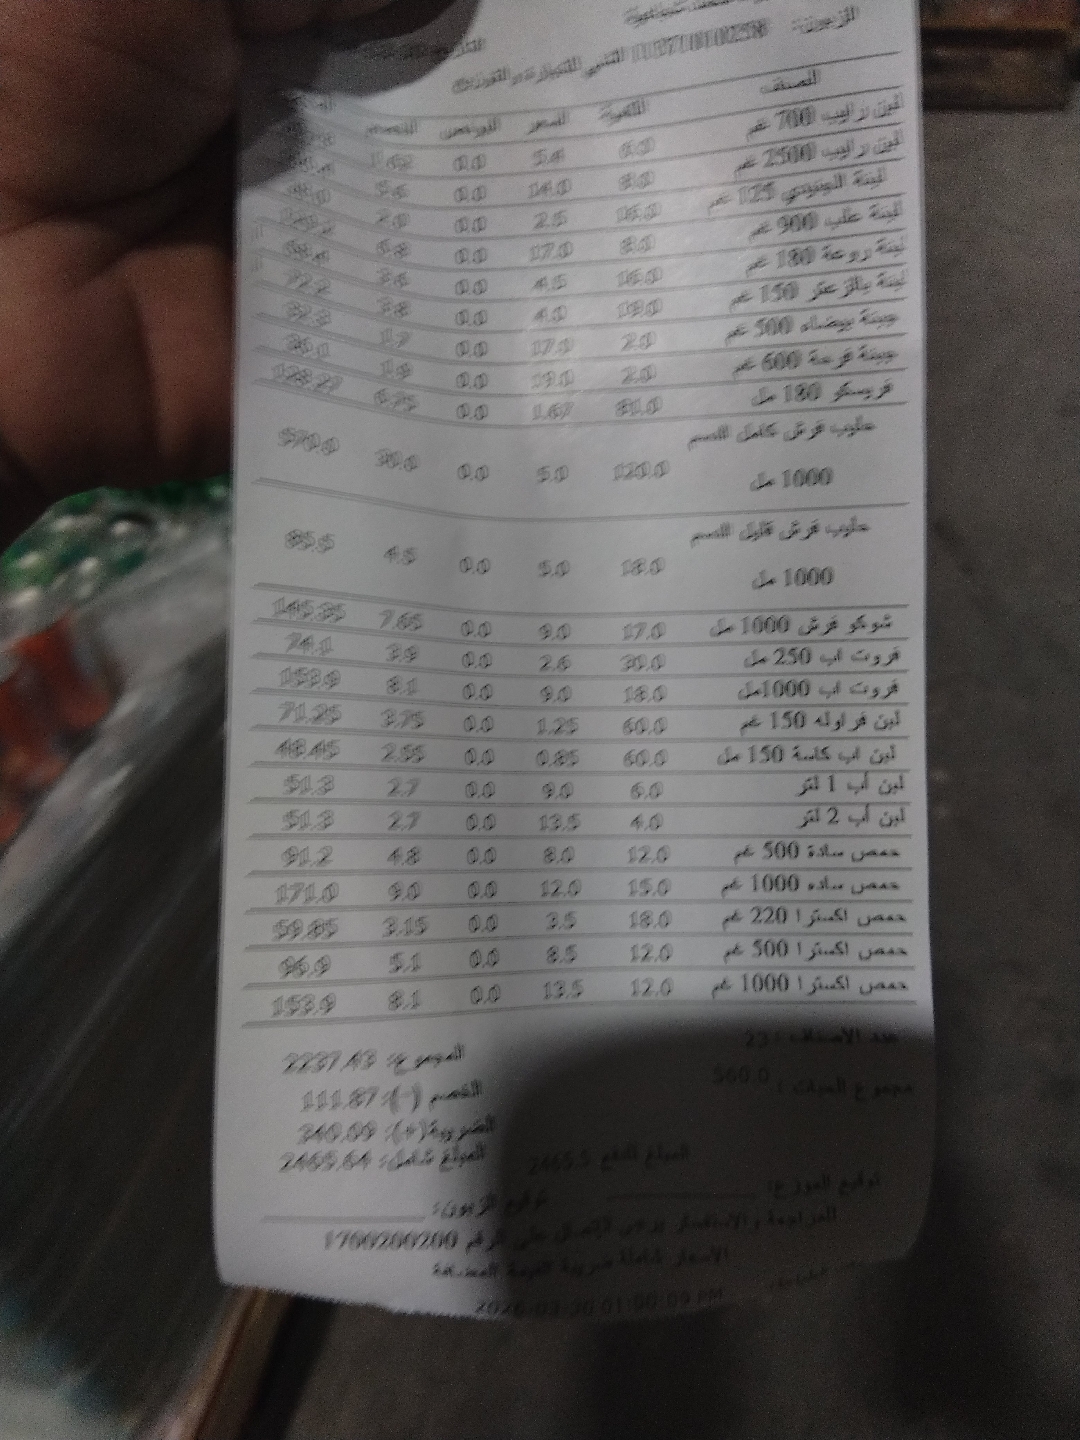 الصنف الكمية السعر البونص الخصم
لبن رايب 700 غم 5.4 0.0
لبن رايب 2500 غم 8.0 14.0 0.0 5.6
لبنة الجنيدي 125 غم 16.0 2.5 0.0 2.0
لبنة علب 900 غم 8.0 17.0 0.0 6.8
لبنة روعة 180 غم 16.0 4.5 0.0 3.6 68.4
لبنة بالزعتر 150 غم 19.0 4.0 0.0 3.8 72.2
جبنة بيضاء 500 غم 2.0 17.0 0.0 1.7 32.3
جبنة فرحة 600 غم 2.0 19.0 0.0 1.9 36.1
فريسكو 180 مل 81.0 1.67 0.0 6.75 128.27
حليب فرش كامل الدسم
1000 مل 120.0 5.0 0.0 30.0 570.0
حليب فرش قليل الدسم
1000 مل 18.0 5.0 0.0 4.5 85.5
شوكو فرش 1000 مل 17.0 9.0 0.0 7.65 145.35
فروت اب 250 مل 30.0 2.6 0.0 3.9 74.1
فروت اب 1000مل 18.0 9.0 0.0 8.1 153.9
لبن فراوله 150 غم 60.0 1.25 0.0 3.75 71.25
لبن اب كاسة 150 مل 60.0 0.85 0.0 2.55 48.45
لبن أب 1 لتر 6.0 9.0 0.0 2.7 51.3
لبن أب 2 لتر 4.0 13.5 0.0 2.7 51.3
حمص سادة 500 غم 12.0 8.0 0.0 4.8 91.2
حمص ساده 1000 غم 15.0 12.0 0.0 9.0 171.0
حمص اكسترا 220 غم 18.0 3.5 0.0 3.15 59.85
حمص اكسترا 500 غم 12.0 8.5 0.0 5.1 96.9
حمص اكسترا 1000 غم 12.0 13.5 0.0 8.1 153.9
عدد الأصناف : 23 المجموع: 2237.43
مجموع الحبات : 560.0 الخصم (-): 111.87
الضريبة(+): 340.09
المبلغ للدفع 2465.5 المبلغ شامل: 2465.64
توقيع الموزع: توقيع الزبون:
للمراجعة والاستفسار يرجى الاتصال على الرقم 1700200200
الأسعار شاملة ضريبة القيمة المضافة